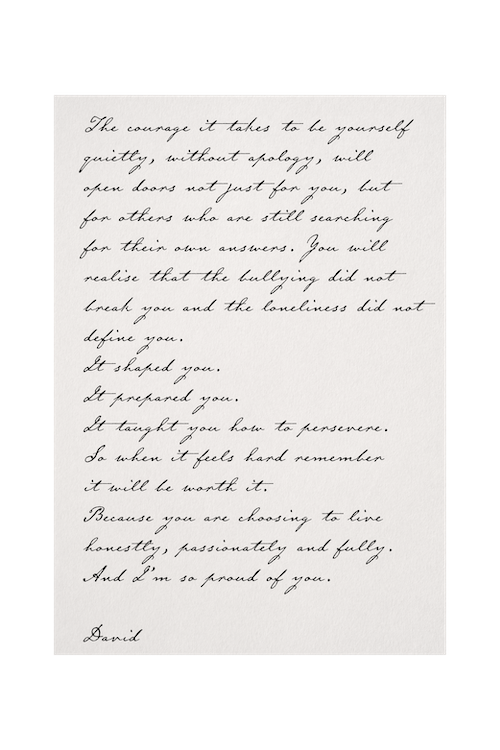 The courage it takes to be yourself
quietly, without apology, will
open doors not just for you, but
for others who are still searching
for their own answers. You will
realise that the bullying did not
break you and the loneliness did not
define you.
It shaped you.
It prepared you.
It taught you how to persevere.
So when it feels hard remember
it will be worth it.
Because you are choosing to live
honestly, passionately and fully.
And I'm so proud of you.
David